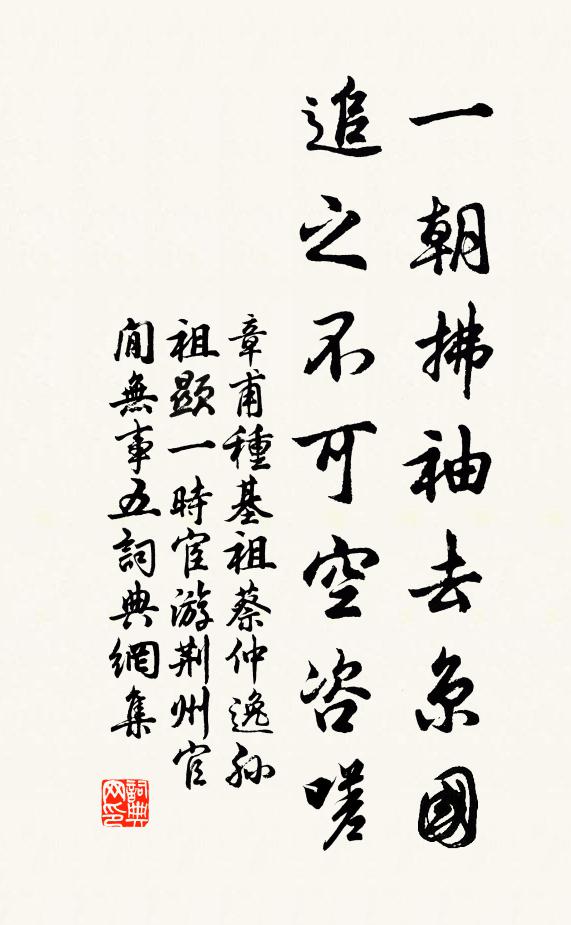 一朝拂袖去京國
追之不可空咨嗟
章甫種基祖蔡仲逸孙
祖顯一時宦游荆州官
閒無事五詞典網集
詞典網印